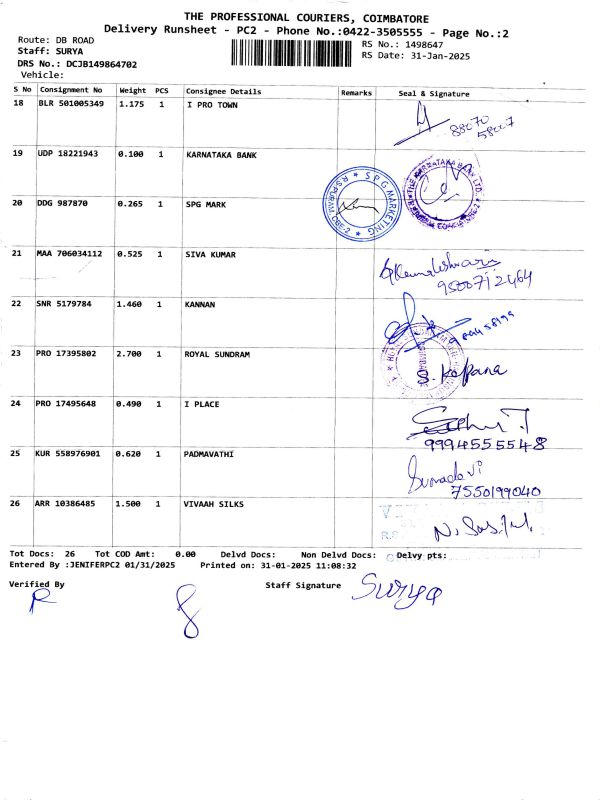 THE PROFESSIONAL COURIERS, COIMBATORE
Delivery Runsheet - PC2 - Phone No.:0422-3505555 - Page No.:2
Route: DB ROAD
Staff: SURYA
DRS No.: DCJB149864702
Vehicle:
RS No.: 1498647
RS Date: 31-Jan-2025
S No Consignment No Weight PCS Consignee Details Remarks Seal & Signature
18 BLR 501005349 1.175 1 I PRO TOWN
88070
58007
19 UDP 18221943 0.100 1 KARNATAKA BANK
20 DDG 987870 0.265 1 SPG MARK
SPG MARKETING
R.S.PURAM, CBE-2
21 MAA 706034112 0.525 1 SIVA KUMAR
22 SNR 5179784 1.460 1 KANNAN
23 PRO 17395802 2.700 1 ROYAL SUNDRAM
S. Kalpana
24 PRO 17495648 0.490 1 I PLACE
9994555548
25 KUR 558976901 0.620 1 PADMAVATHI
7550199040
26 ARR 10386485 1.500 1 VIVAAH SILKS
Tot Docs: 26 Tot COD Amt: 0.00 Delvd Docs: Non Delvd Docs: Delvy pts:
Entered By :JENIFERPC2 01/31/2025 Printed on: 31-01-2025 11:08:32
Verified By Staff Signature Surya